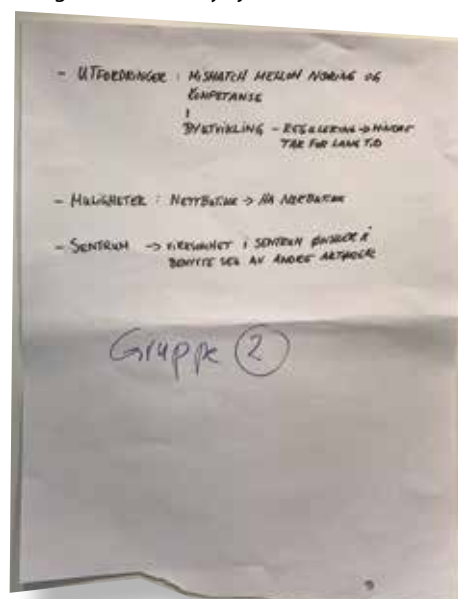 - UTFORDRINGER : MISMATCH MELLOM NÆRING OG
KOMPETANSE
BYUTVIKLING - REGULERING →
TAR FOR LANG TID
- MULIGHETER : NETTBUTIKK →
- SENTRUM → VIRKSOMHET I SENTRUM ØNSKER Å
BENYTTE SEG AV ANDRE
Gruppe 2